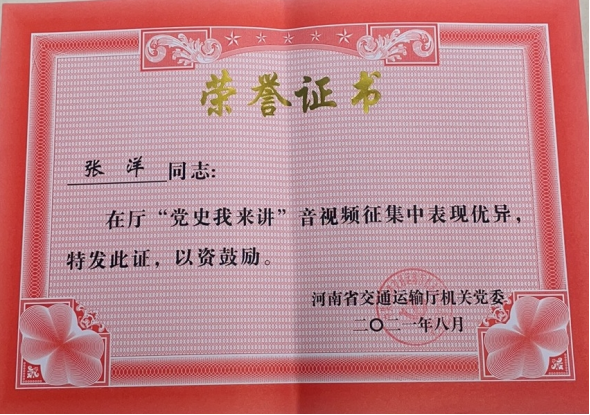 荣誉证书
张洋同志:
在厅“党史我来讲”音视频征集中表现优异,
特发此证,以资鼓励。
河南省交通运输厅机关党委
二〇二一年八月